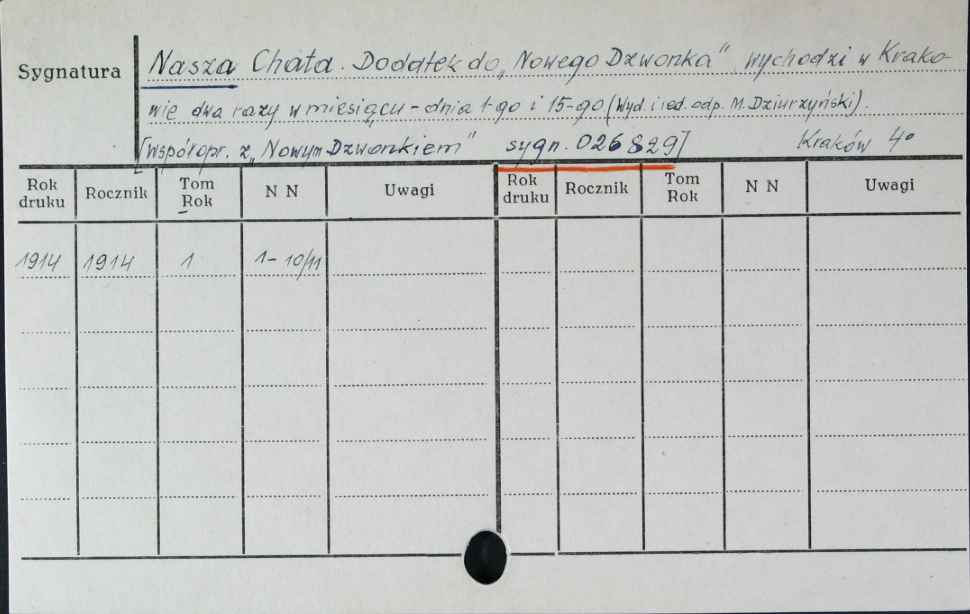 Sygnatura
Nasza Chata. Dodatek do „Nowego Dzwonka" wychodzi w Krako-
wie dwa razy w miesiącu - dnia 1-go i 15-go (Wyd. i red. odp. M. Dziurzyński).
[Współopr. z „Nowym Dzwonkiem" sygn. 026829] Kraków 4°
Rok druku Rocznik Tom Rok N N Uwagi Rok druku Rocznik Tom Rok N N Uwagi
1914 1914 1 1-10/11